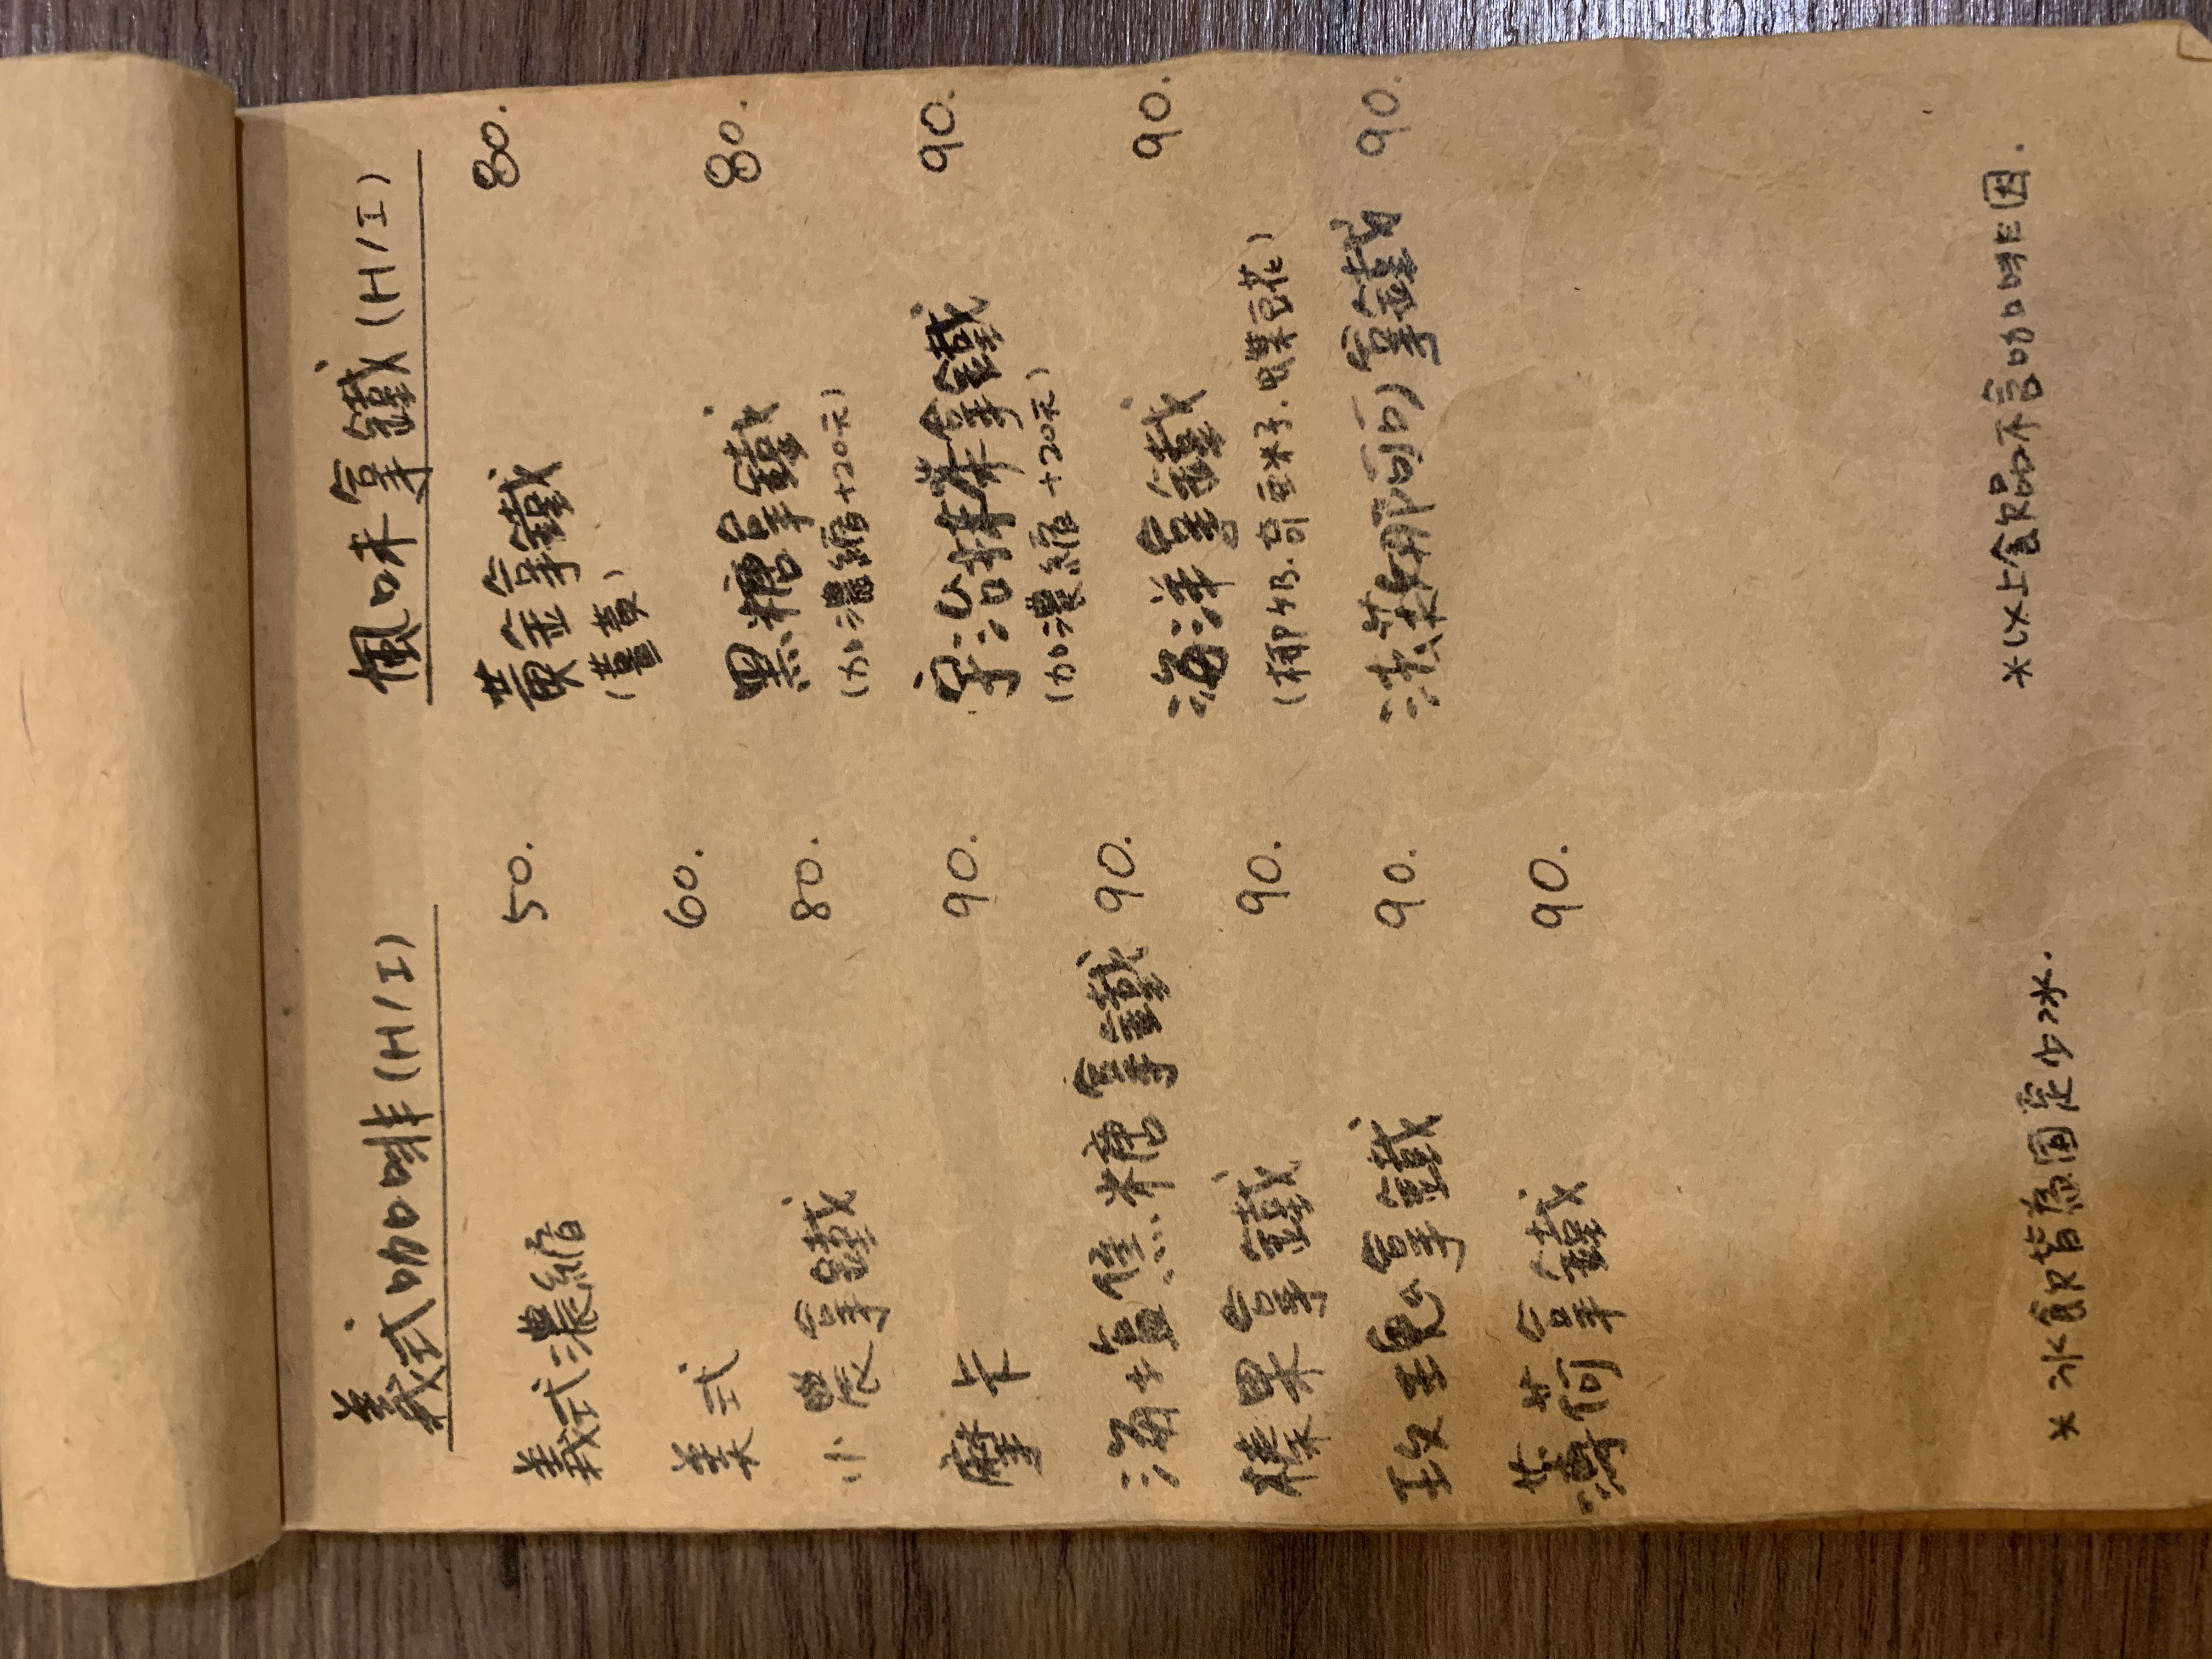 義式咖啡(H/I)
義式濃縮 50.
美式 60.
小農拿鐵 80.
摩卡 90.
海塩焦糖拿鐵 90.
榛果拿鐵 90.
玫瑰拿鐵 90.
薄荷拿鐵 90.
*冰飲皆為固定少冰.
風味拿鐵(H/I)
黃金拿鐵 80.
(薑黃)
黑糖拿鐵 80.
(加濃縮+20元)
宇治抹茶拿鐵 90.
(加濃縮+20元)
海洋拿鐵 90.
(椰奶.奇亞籽.蝶豆花)
法芙娜可可拿鐵 90.
*以上飲品不含咖啡因.